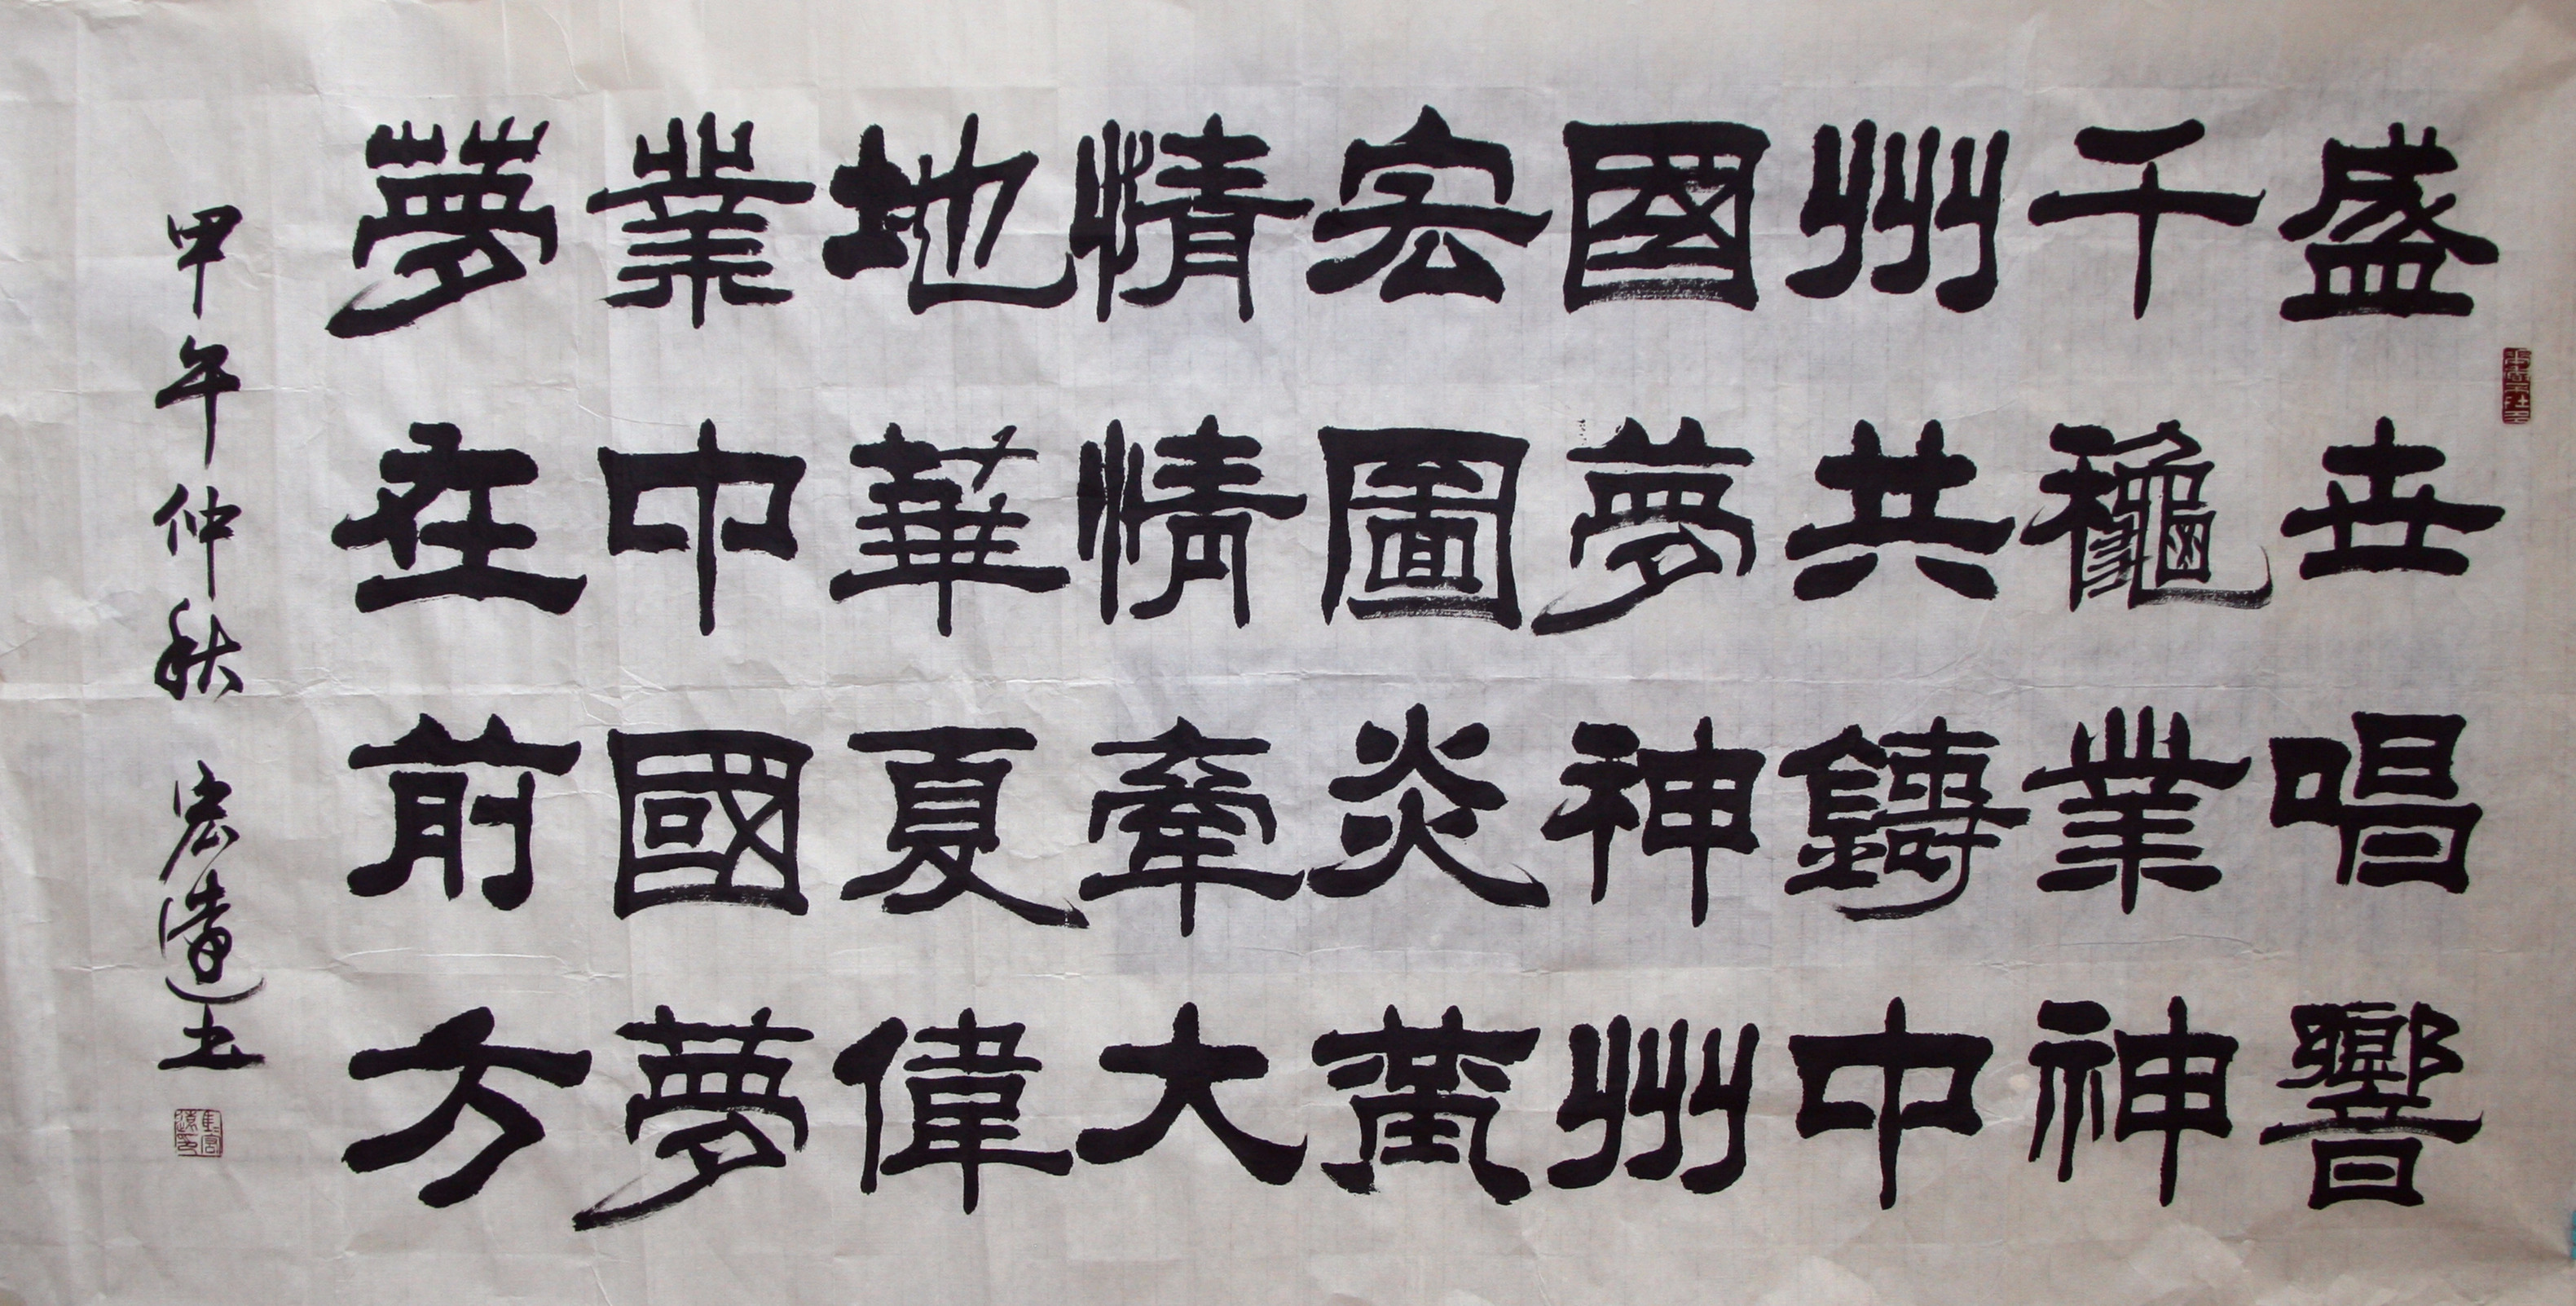 盛世唱響
千龝業神
州共鑄中
國夢神州
宏圖炎萬
情情牽大
地華夏偉
業中國夢
夢在前方
甲午仲秋 宏遠书